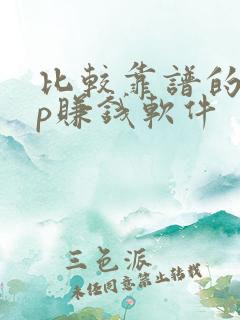 比較靠譜的
p賺錢軟件
三色派
未經同意禁止轉載